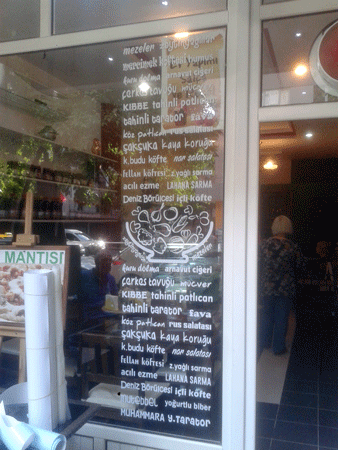 mezeler zeytinyağlılar
mercimek köftesi
kuru dolma arnavut ciğeri
çerkes tavuğu mücver
KIBBE tahinli patlıcan
tahinli tarator fava
köz patlıcan rus salatası
çakşuka kaya koruğu
k.budu köfte nar salatası
fellan köftesi z.yağlı sarma
acılı ezme LAHANA SARMA
Deniz Börülcesi İçli köfte
MANTISI
kuru dolma arnavut ciğeri
çerkes tavuğu mücver
KIBBE tahinli patlıcan
tahinli tarator fava
köz patlıcan rus salatası
çakşuka kaya koruğu
k.budu köfte nar salatası
fellan köftesi z.yağlı sarma
acılı ezme LAHANA SARMA
Deniz Börülcesi İçli köfte
mütebbel yoğurtlu biber
MUHAMMARA Y.Tarator